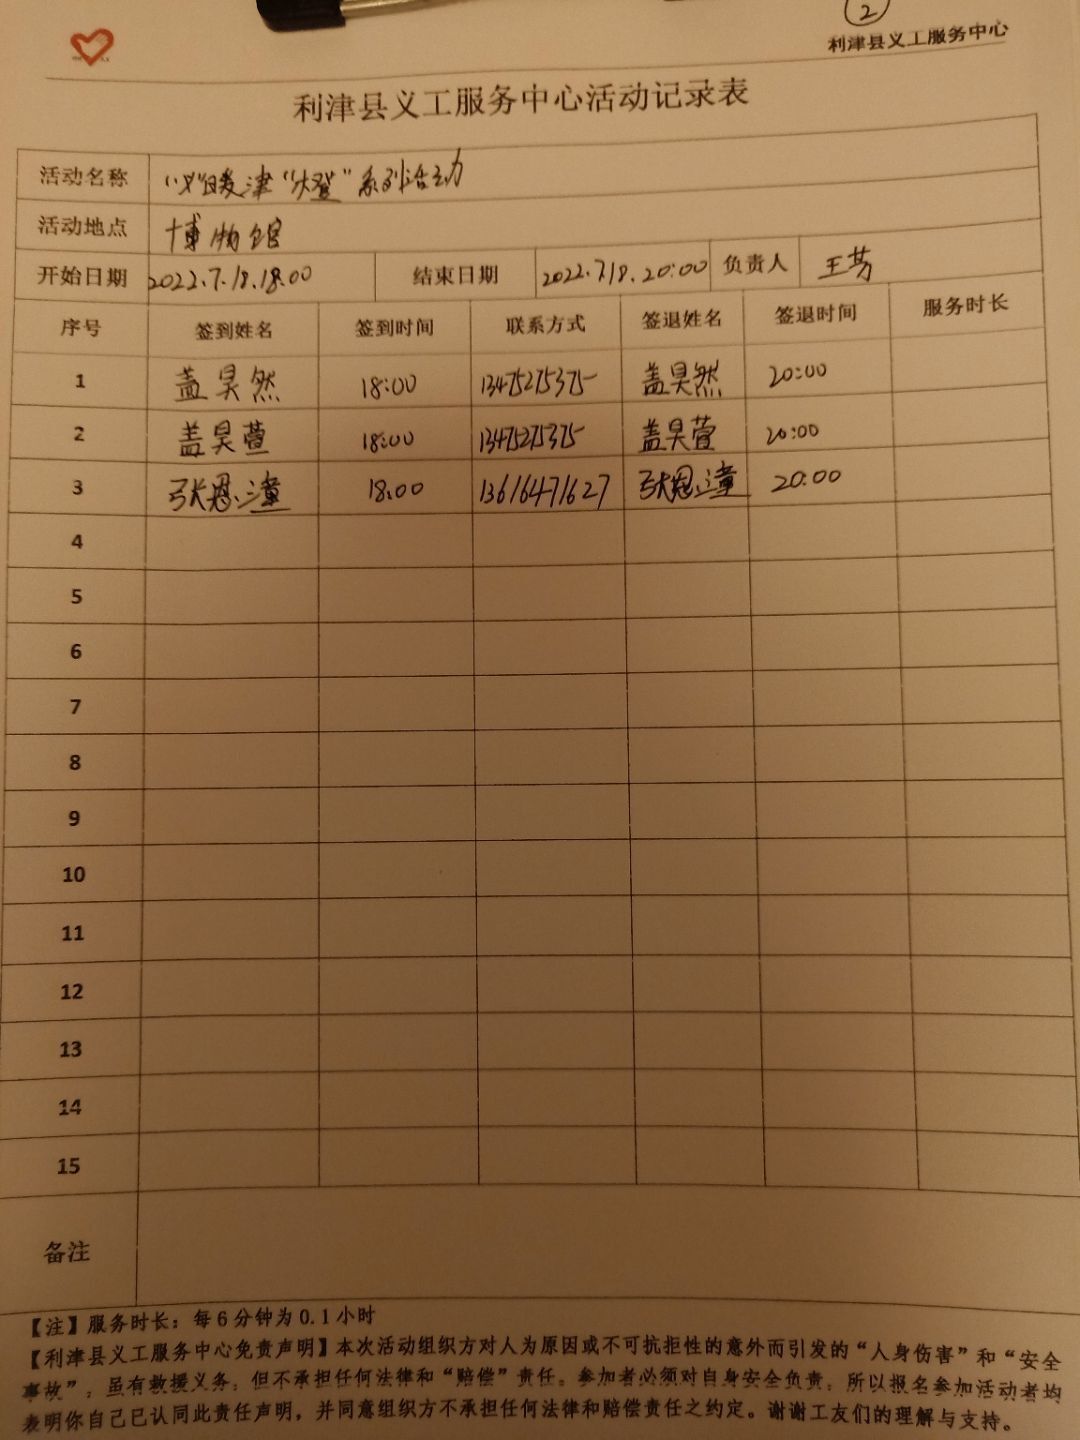 2
利津县义工服务中心
利津县义工服务中心活动记录表
活动名称 "义"暖津"大登"系列活动
活动地点 博物馆
开始日期 2022.7.18.18:00 结束日期 2022.7.18.20:00 负责人 王芳
序号 签到姓名 签到时间 联系方式 签退姓名 签退时间 服务时长
1 盖昊然 18:00 13475275375 盖昊然 20:00
2 盖昊萱 18:00 13475275375 盖昊萱 20:00
3 张恩潼 18:00 13616471627 张恩潼 20:00
4
5
6
7
8
9
10
11
12
13
14
15
备注
【注】服务时长：每6分钟为0.1小时
【利津县义工服务中心免责声明】本次活动组织方对人为原因或不可抗拒性的意外而引发的“人身伤害”和“安全
事故”，虽有救援义务，但不承担任何法律和“赔偿”责任。参加者必须对自身安全负责，所以报名参加活动者均
表明你自己已认同此责任声明，并同意组织方不承担任何法律和赔偿责任之约定。谢谢工友们的理解与支持。